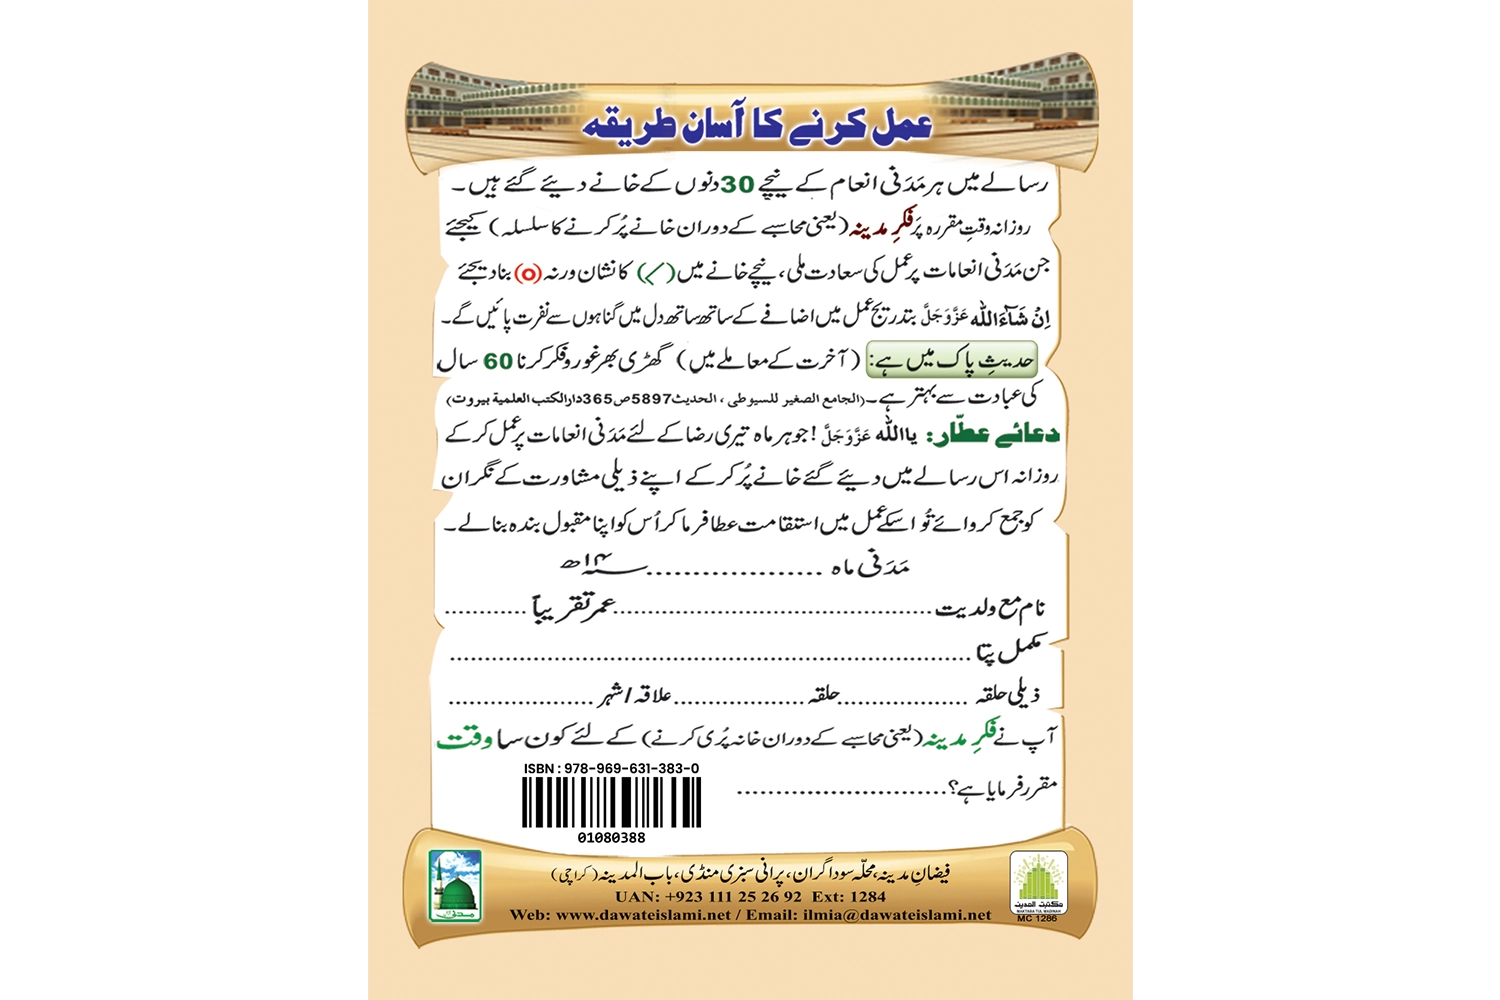 عمل کرنے کا آسان طریقہ
رسالے میں ہر مَدَنی انعام کے نیچے 30 دنوں کے خانے دیئے گئے ہیں۔
روزانہ وقتِ مقررہ پَر فکرِ مدینہ (یعنی محاسبے کے دوران خانے پُر کرنے کا سلسلہ) کیجئے
جن مَدَنی انعامات پر عمل کی سعادت ملی، نیچے خانے میں (✓) کا نشان ورنہ (O) بنا دیجئے
اِنْ شَآءَ اللّٰه عَزَّوَجَلَّ بتدریج عمل میں اضافے کے ساتھ ساتھ دل میں گناہوں سے نفرت پائیں گے۔
حدیثِ پاک میں ہے: (آخرت کے معاملے میں) گھڑی بھر غور و فکر کرنا 60 سال
کی عبادت سے بہتر ہے۔ (الجامع الصغير للسيوطى ، الحديث 5897 ص 365 دار الكتب العلمية بيروت)
دعائے عطّار: یا اللّٰه عَزَّوَجَلَّ! جو ہر ماہ تیری رضا کے لئے مَدَنی انعامات پر عمل کر کے
روزانہ اس رسالے میں دیئے گئے خانے پُر کر کے اپنے ذیلی مشاورت کے نگران
کو جمع کروائے تُو اسکے عمل میں استقامت عطا فرما کر اُس کو اپنا مقبول بندہ بنا لے۔
مَدَنی ماہ .................. سنہ ۱۴ھ
نام مع ولدیت .................................. عمر تقریباً ...........
مکمل پتا ..........................................................
ذیلی حلقہ .................. حلقہ .................. علاقہ / شہر ..................
آپ نے فکرِ مدینہ (یعنی محاسبے کے دوران خانہ پُری کرنے) کے لئے کون سا وقت
مقرر فرمایا ہے؟ ............................
ISBN : 978-969-631-383-0
01080388
فیضانِ مدینہ، محلّہ سوداگران، پرانی سبزی منڈی، باب المدینہ (کراچی)
UAN: +923 111 25 26 92 Ext: 1284
Web: www.dawateislami.net / Email: ilmia@dawateislami.net
مكتبة المدينه
MAKTABA TUL MADINAH
MC 1286